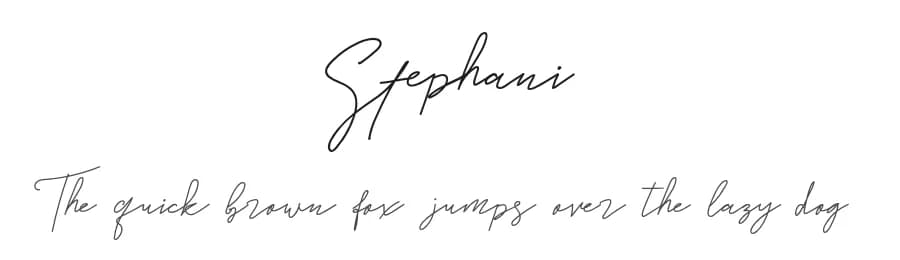 Stephani
The quick brown fox jumps over the lazy dog